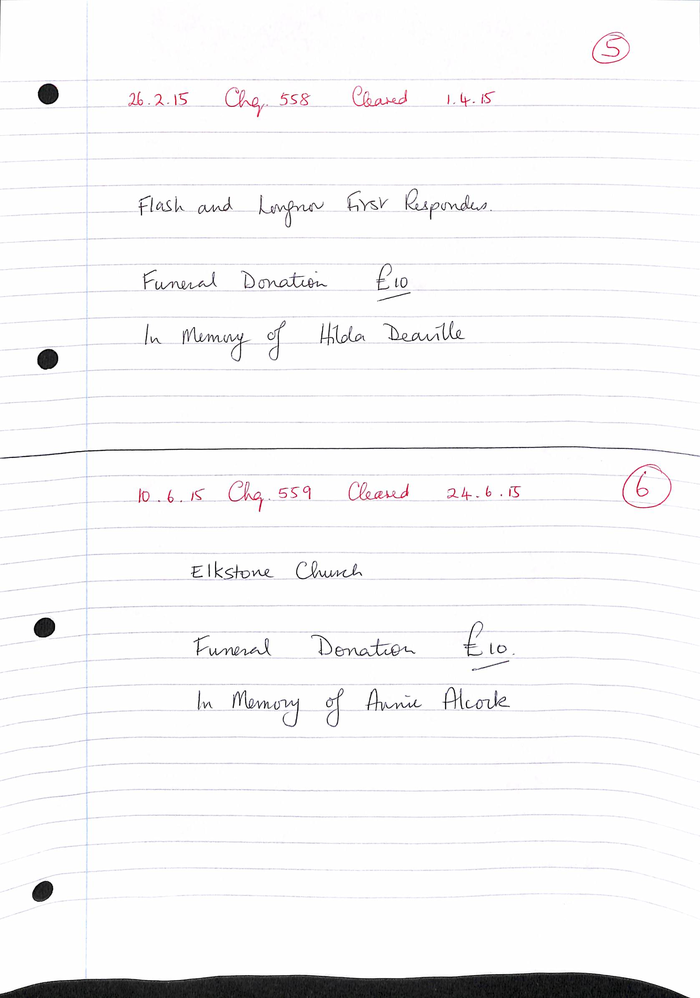 5
26.2.15 Chq. 558 Cleared 1.4.15
Flash and Longnor First Responders.
Funeral Donation £10
In Memory of Hilda Deaville
10.6.15 Chq. 559 Cleared 24.6.15
6
Elkstone Church
Funeral Donation £10.
In Memory of Annie Alcock